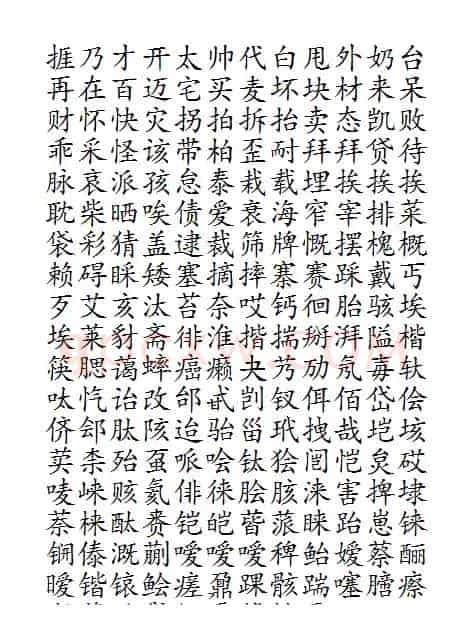 捱乃才开太帅代白甩外奶台
再在百迈宅买麦坏块材来呆
财怀快灾拐拍拆抬卖态凯败
乖采怪该带柏歪耐拜拜贷待
脉哀派孩怠泰栽载埋挨挨挨
耽柴晒唉债爱衰海窄宰排菜
袋彩猜盖逮裁筛牌慨摆槐概
赖碍睬矮塞摘摔寨赛踩戴丐
歹艾亥汰苔奈哎钙徊胎骇埃
埃莱豺斋徘淮揩揣掰湃隘楷
筷腮蔼蟀癌癞夬艿劢氖毐轪
呔忾诒改邰甙剀钗佴佰岱侩
侪郐肽陔迨骀甾玳拽哉垲垓
荬柰殆虿哌哙钛狯闿恺炱砹
唛崃赅氦俳徕脍胲涞害捭埭
萘梾酞赉铠皑菑蒎睐跆崽铼
锎傣溉蒯嗳嗳嗳稗鲐嫒蔡酾
暧锴锿鲙瘥鼐踝骸踹噻膪瘵